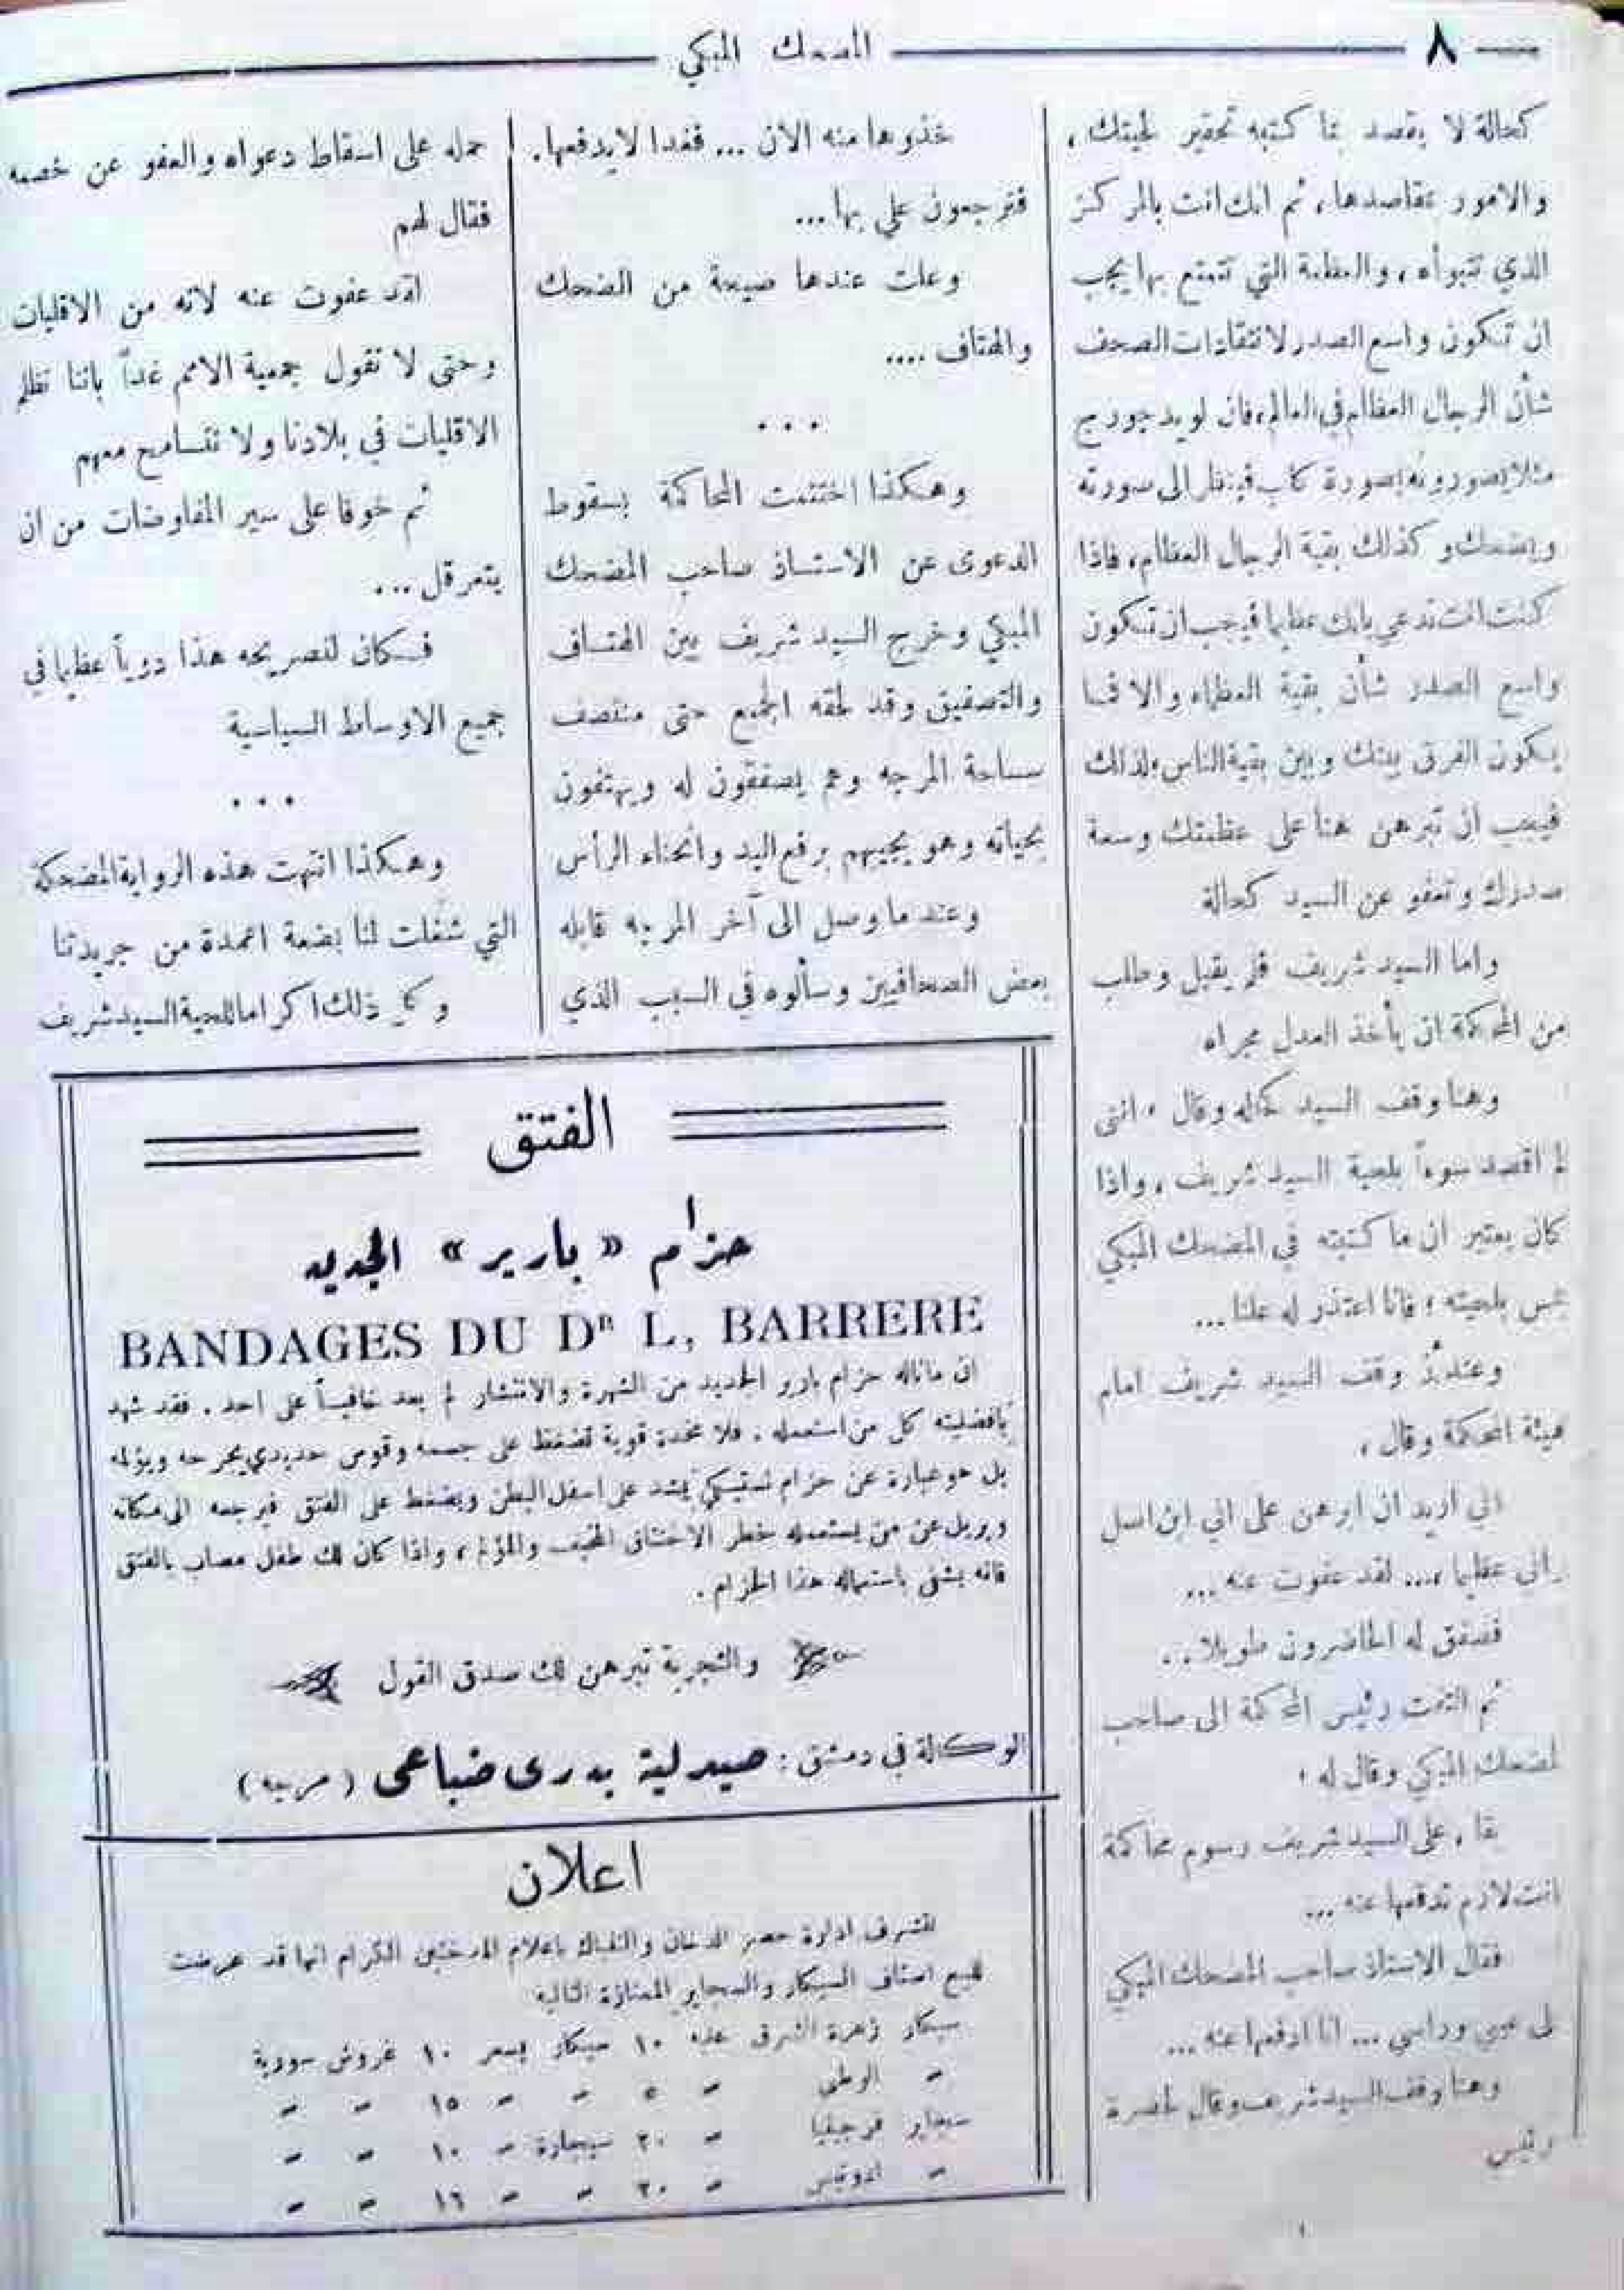 ٨
المضحك المبكي
كحالة لا يقصد بما كتبه تحقير لحيتك ،
والامور بمقاصدها ، ثم انك انت بالمركز
الذي تتبوأه ، والعظمة التي تتمتع بها يجب
ان تكون واسع الصدر لانتقادات الصحف
شأن الرجال العظام في العالم ، فان لويد جورج
مثلا يصورونه بصورة كلب فينظر الى صورته
ويضحك وكذلك بقية الرجال العظام ، فاذا
كنت انت تدعي بانك عظيما فيجب ان تكون
واسع الصدر شأن بقية العظماء والا فما
يكون الفرق بينك وبين بقية الناس ، لذلك
فيجب ان تبرهن هنا على عظمتك وسعة
صدرك وتعفو عن السيد كحالة
واما السيد شريف فلم يقبل وطلب
من المحكمة ان يأخذ العدل مجراه
وهنا وقف السيد كحاله وقال ، انني
لم اقصد سوءاً بلحية السيد شريف ، واذا
كان يعتبر ان ما كتبته في المضحك المبكي
يمس بلحيته ؛ فانا اعتذر له علنا ...
وعندئذ وقف السيد شريف امام
هيئة المحكمة وقال ،
اني اريد ان ابرهن على اني ابن اصل
واني عظيما ،... لقد عفوت عنه ...
فصفق له الحاضرون طويلا . .
ثم التفت رئيس المحكمة الى صاحب
المضحك المبكي وقال له ؛
بقا ، على السيد شريف رسوم محاكمة
انت لازم تدفعها عنه ...
فقال الاستاذ صاحب المضحك المبكي
على عيني وراسي ... انا ادفعها عنه ...
وهنا وقف السيد شريف وقال لحضرة
رئيس
خذوها منه الان ... فغدا لا يدفعها .
فترجعون علي بها ...
وعلت عندها صيحة من الضحك
والهتاف ....
. . .
وهكذا اختتمت المحاكمة بسقوط
الدعوى عن الاستاذ صاحب المضحك
المبكي وخرج السيد شريف بين الهتاف
والتصفيق وقد لحقه الجميع حتى منتصف
ساحة المرجه وهم يصفقون له ويهتفون
بحياته وهو يجيبهم برفع اليد وانحناء الرأس
وعند ما وصل الى آخر المرجه قابله
بعض الصحافيين وسألوه في السبب الذي
حمله على اسقاط دعواه والعفو عن خصمه
فقال لهم
لقد عفوت عنه لانه من الاقليات
وحتى لا تقول جمعية الامم غداً باننا نظلم
الاقليات في بلادنا ولا نتسامح معهم
ثم خوفا على سير المفاوضات من ان
يتعرقل ...
فكان لتصريحه هذا دوياً عظيما في
جميع الاوساط السياسية
. . .
وهكذا انتهت هذه الرواية المضحكة
التي شغلت لنا بضعة اعمدة من جريدتنا
وكل ذلك اكراما للحية السيد شريف
الفتق
حزام « بارير » الجديد
BANDAGES DU Dr L. BARRERE
ان ماناله حزام بارير الجديد من الشهرة والانتشار لم يعد خافياً على احد . فقد شهد
بافضليته كل من استعمله . فلا مخدة قوية تضغط على جسمه وقوس حديدي يجرحه ويؤلمه
بل هو عبارة عن حزام لستيكي يشد على اسفل البطن ويضغط على الفتق فيرجعه الى مكانه
ويزيل عن من يستعمله خطر الاختناق المخيف والمؤلم ، واذا كان لك طفل مصاب بالفتق
فانه يشفى باستعماله هذا الحزام .
والتجربة تبرهن لك صدق القول
الوكالة في دمشق : صيدلية بدري ضباعي ( مرجه )
اعلان
تتشرف ادارة حصر الدخان والتنباك باعلام المدخنين الكرام انها قد عرضت
للبيع اصناف السيكار والسجاير الممتازة التالية
سيكار زهرة الشرق علبه ١٠ سيكار بسعر ١٠ غروش سورية
" الوطني " ٥ " " ١٥ " "
سيجاير فرجينيا " ٢٠ سيجارة " ١٠ " "
" " ٢٠ " " ١٦ " "